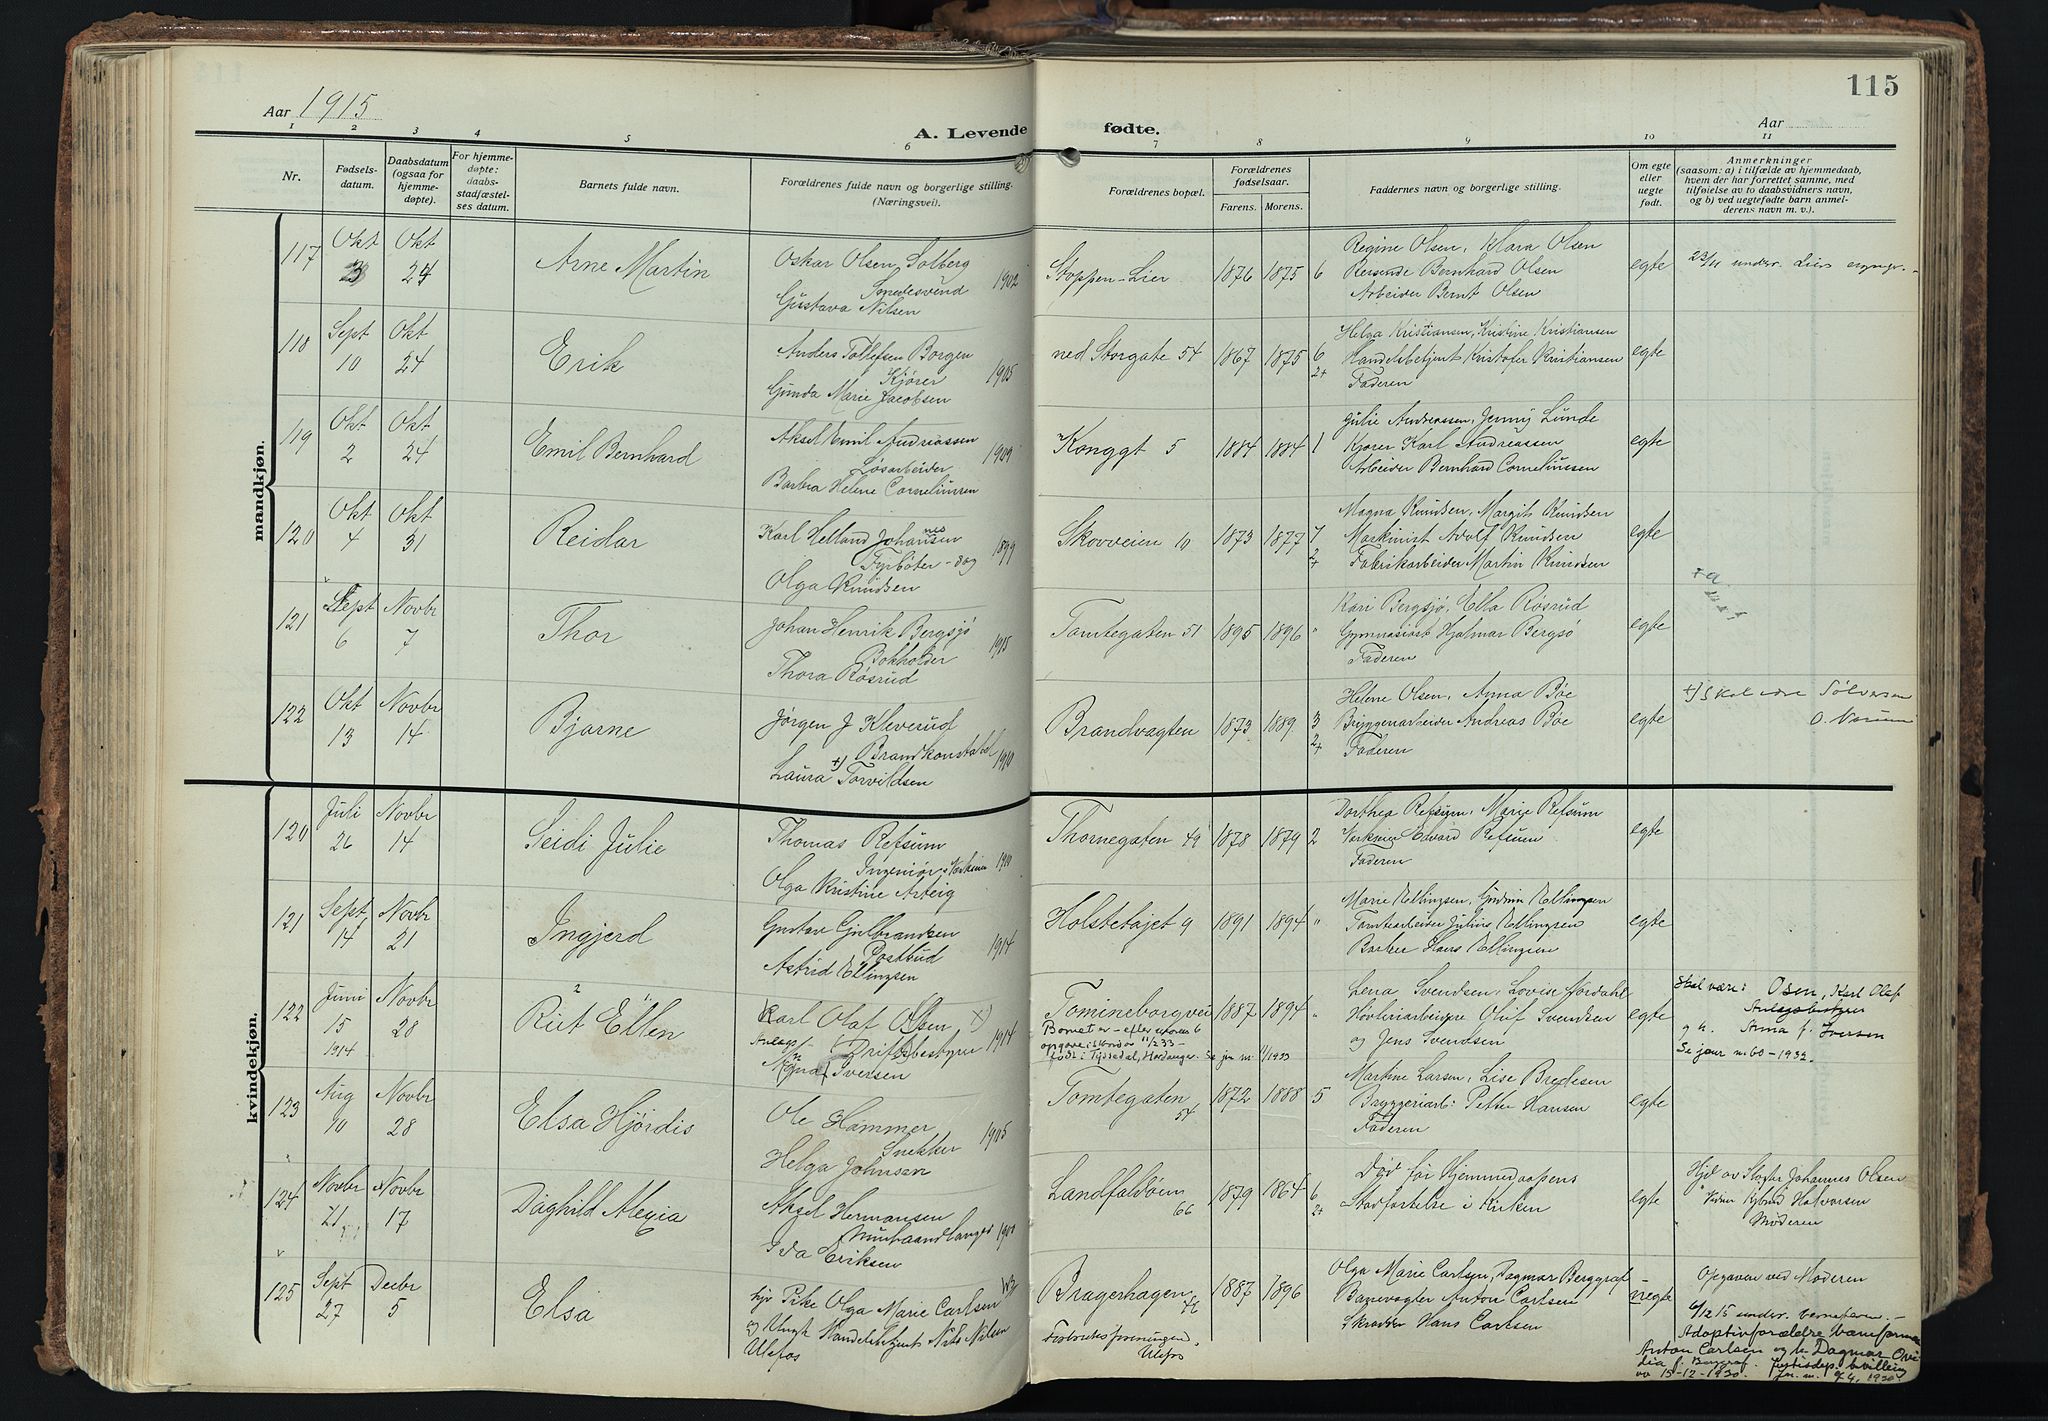 115
Aar 1915
A. Levende fødte.
Aar
1 2 3 4 5 6 7 8 9 10 11
Nr.
Fødselsdatum.
Daabsdatum (ogsaa for hjemmedøpte).
For hjemmedøpte: daabsstadfæstelses datum.
Barnets fulde navn.
Forældrenes fulde navn og borgerlige stilling.
(Næringsvei).
Forældrenes bopæl.
Forældrenes fødselsaar.
Farens. Morens.
Faddernes navn og borgerlige stilling.
Om egte eller uegte født.
Anmerkninger
(saasom: a) i tilfælde av hjemmedaab,
hvem der har forrettet samme, med
tilføielse av to daabsvidners navn,
og b) ved uegtefødte barn anmelderens navn m. v.).
mandkjøn.
117 Okt 3 Okt 24 Arne Martin
Oskar Olsen Solberg
Smedesvend
Gustava Nilsen
1902
Stoppen - Lier 1876 1875 6
Regine Olsen, Klara Olsen
Reisende Bernhard Olsen
Arbeider Bernt Olsen
egte
23/11 under. Lier
118 Sept 10 Okt 24 Erik
Anders Tollefsen Borgen
Kjører
Gunda Marie Jacobsen
1905
ned Storgate 54 1867 1875 6 2+
Helga Kristiansen, Kristine Kristiansen
Handelsbetjent Kristofer Kristiansen
Faderen
egte
119 Okt 2 Okt 24 Emil Bernhard
Aksel Emil Andreassen
Løsarbeider
Barbra Helene Corneliussen
1909
Konggt 5 1884 1884 1
Julie Andreassen, Jenny Lunde
Kjører Karl Andreassen
Arbeider Bernhard Corneliussen
egte
120 Okt 4 Okt 31 Reidar
Karl Helland Johansen
nes
Fyrbøter
Olga Knudsen
1899
Skovveien 10 1873 1877 7 2+
Magna Knudsen, Margit Knudsen
Maskinist Adolf Knudsen
Fabrikarbeider Martin Knudsen
egte
121 Sept 6 Novbr 7 Thor
Johan Henrik Bergsjø
Bokholder
Thora Røsrud
1915
Tomtegaten 51 1895 1896 "
Kari Bergsjø, Ella Røsrud
Gymnasiast Hjalmar Bergsø
Faderen
egte
122 Okt 13 Novbr 14 Bjarne
Jørgen J Kleverud
+) Brandkonstabel
Laura Torvildsen
1910
Brandvagten 1873 1889 3 2+
Helene Olsen, Anna Bøe
Bryggearbeider Andreas Bøe
Faderen
egte
+) Skal være Sølversen
kvindekjøn.
120 Juli 26 Novbr 14 Seidi Julie
Thomas Refsum
Ingeniør
Olga Kristine Arteig
Thornegaten 49 1878 1879 2
Dorthea Refsum, Marie Refsum
Edvard Refsum
Faderen
egte
121 Sept 14 Novbr 21 Ingjerd
Gustav Gulbrandsen
Postbud
Astrid Ellingsen
1914
Holstehøjet 9 1891 1894 "
Marie Ellingsen, Gudrun Ellingsen
Tomtearbeider Julius Ellingsen
Barber Hans Ellingsen
egte
122 Juni 15 1914 Novbr 28 Rut Ellen
Karl Olaf Olsen x)
Anlegs- Driftsbestyrer
Agna Iversen
1914
Tomineborgvei 1887 1894 "
Barnet er - efter
opgave
født i Tyssedal, Hardanger.
Lena Svendsen, Lovise Nordahl
Høvleriarbeidere Oluf Svendsen
og Jens Svendsen
egte
Skal være: Osen, Karl Olaf
Anlegsbestyrer
og h. Anna f. Iversen
Se jour n. 60 - 1932
123 Aug 10 Novbr 28 Elsa Hjørdis
Ole Hammer
Snekker
Helga Johnsen
1905
Tomtegaten 54 1872 1888 5
Martine Larsen, Lise Bredesen
Bryggeriarb: Petter Hansen
Faderen
egte
124 Novbr 21 Novbr 17 Daghild Alexia
Aksel Hermansen
Murhaandlanger
Ida Eriksen
1901
Landfaldøen 66 1879 1864 6 2+
Død før Hjemmedaapens
Stadfæstelse i Kirken
egte
Hjd av Johannes Olsen
Halvorsen
Moderen
125 Sept 27 Decbr 5 Elsa
Pike Olga Marie Carlsen
Ungk Handelsbetjent Nils Nilsen
Ulefos
Bragerhagen 1887 1896
Ulefos
Olga Marie Carlsen, Dagmar Berggraf
Banevogter Anton Carlsen
Skrædder Hans Carlsen
uegte
Opgaven ved Moderen
6/12 15 under.
Adoptivforældre
Anton Carlsen og h. Dagmar Ovidia f. Berggraf. Justisdep. bevilling
av 15-12-1920.